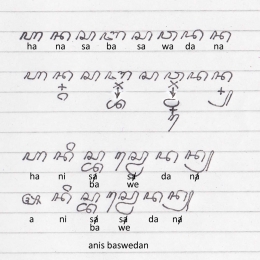 ꦲ ꦤ ꦱ ꦧ ꦱ ꦮ ꦢ ꦤ
ha na sa ba sa wa da na
ꦲ ꦤ ꦱ ꦧ ꦱ ꦮ ꦢ ꦤ
ꦲꦤꦶꦱ꧀ꦧꦱ꧀ꦮꦺꦢꦤ꧀
ha ni sa sa da na
ba we
ꦄꦤꦶꦱ꧀ꦧꦱ꧀ꦮꦺꦢꦤ꧀
a ni sa sa da na
ba we
anis baswedan